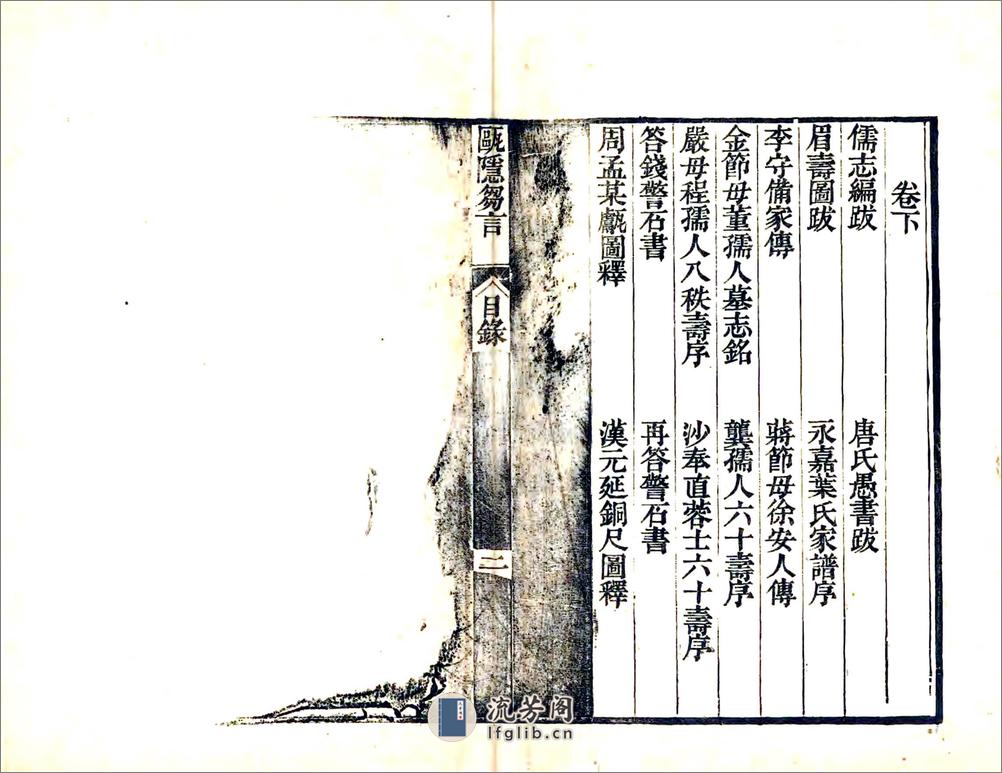 卷下
儒志編跋　唐氏愚書跋
眉壽圖跋　永嘉葉氏家譜序
李守備家傳　蔣節母徐安人傳
金節母董孺人墓志銘　龔孺人六十壽序
嚴母程孺人八秩壽序　沙奉直蓉士六十壽序
答錢警石書　再答警石書
周孟某甗圖釋　漢元延銅尺圖釋
甌隱芻言
目錄
二
流芳阁
lfglib.cn